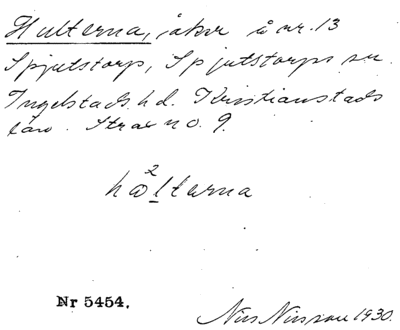 Hulterna, åker å nr. 13
Spjutstorp, Spjutstorps sn.
Ingelstads hd. Kristianstads
län. Strax n o. 9.
2
hɷlterna
Nr 5454.
Nils Nilsson 1930.